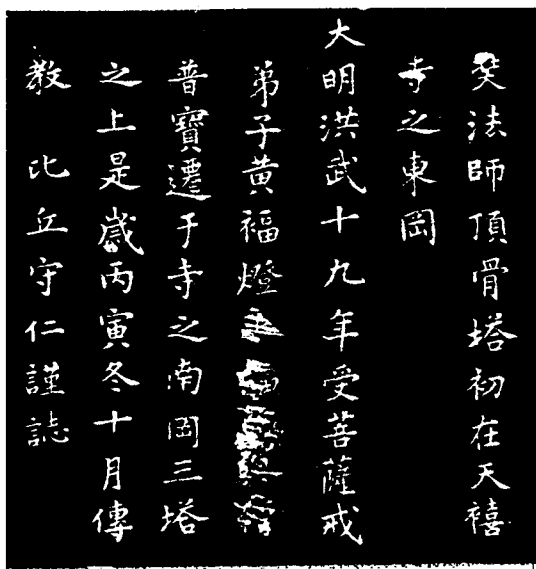 奘法師頂骨塔初在天禧
寺之東岡
大明洪武十九年受菩薩戒
弟子黃福燈
普寶遷于寺之南岡三塔
之上是歲丙寅冬十月傳
教 比丘守仁謹誌